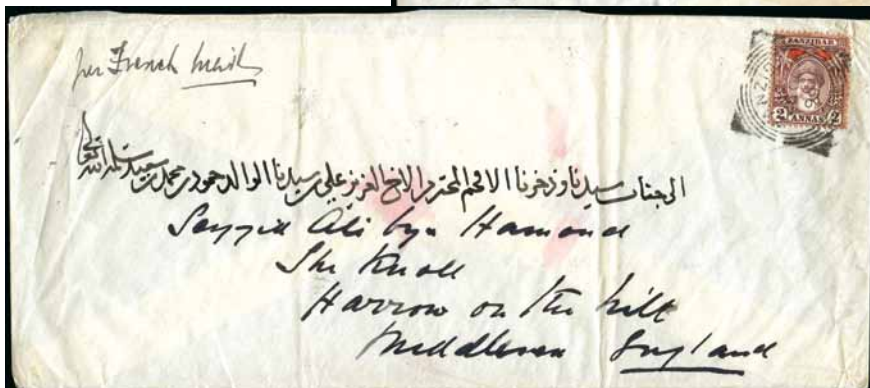 per French Mail
ZANZIBAR
2 ANNAS 2
الى جناب سيدنا وذخرنا الافخم المحترم الاخ العزيز علي بن سيدنا الوالد حمود بن محمد بن سعيد سلمه الله تعالى
Seyyid Ali byn Hamoud
The Knoll
Harrow on the hill
Middlesex England